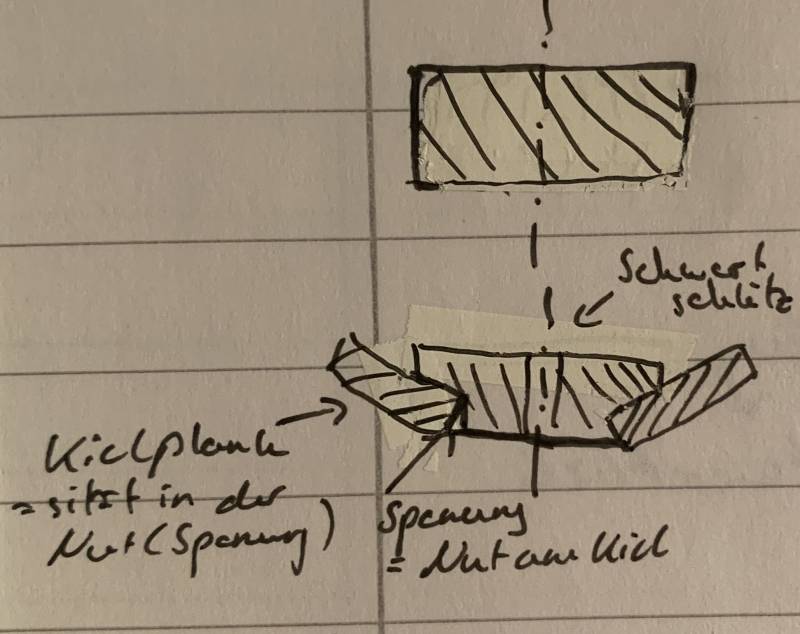 Schwert
schlitz
Kielplank
= sitzt in der
Nut (Spanung)
Spanung
= Nut am Kiel